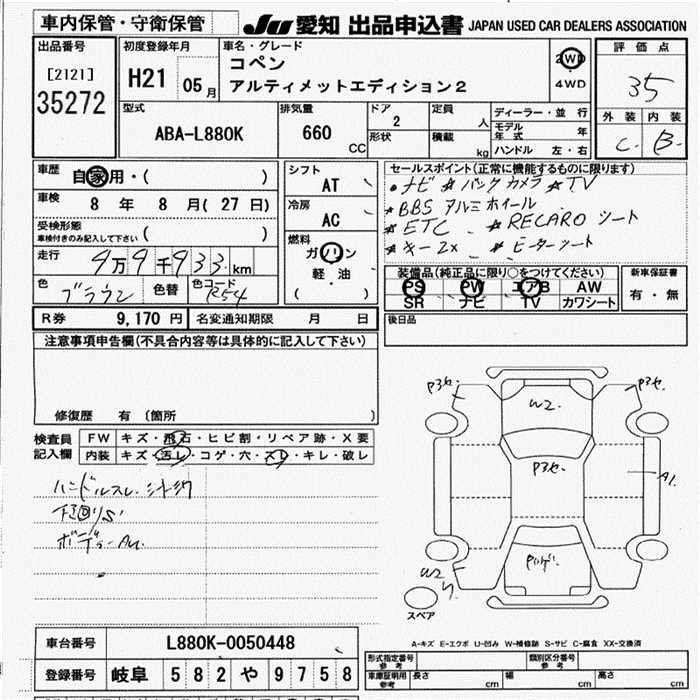 車内保管・守衛保管
JU 愛知 出品申込書 JAPAN USED CAR DEALERS ASSOCIATION
出品番号
[2121]
35272
初度登録年月
H21 05月
車名・グレード
コペン
アルティメットエディション2
2WD
4WD
評価点
35
外装 内装
C B
型式
ABA-L880K
排気量
660 CC
ドア 2
形状
定員 人
積載 kg
ディーラー・並行
モデル年式 年
ハンドル 左・右
車歴 自家用・( )
車検 8年 8月(27日)
受検形態
車検付きのみ記入して下さい ( )
走行 9万9千933km
色 ブラウン 色替 色コード R54
シフト AT
冷房 AC
燃料 ガソリン
軽・油
( )
セールスポイント(正常に機能するものに限ります)
・ナビ ☆バックカメラ ☆TV
☆BBS アルミホイール
☆ETC ☆RECARO シート
☆キー2x ☆ヒーターシート
装備品(純正品に限り○をつけてください)
PS PW エアB AW
SR ナビ TV カワシート
新車保証書
有・無
R券 9,170円 名変通知期限 月 日
後日品
注意事項申告欄(不具合内容等は具体的に記入して下さい)
修復歴 有〔箇所 〕
検査員記入欄
FW キズ・飛石・ヒビ割・リペア跡・X要
内装 キズ・汚レ・コゲ・穴・スレ・キレ・破レ
ハンドルスレ
下回りS
P3セ P3セ
W2
P3セ
A1
W2
スペア
A-キズ E-エクボ U-凹み W-補修跡 S-サビ C-腐食 XX-交換済
車台番号 L880K-0050448
登録番号 岐阜 582 や 9758
形式指定番号 参考
類別区分番号 参考
車庫証明用 参考 長さ cm 幅 cm 高さ cm